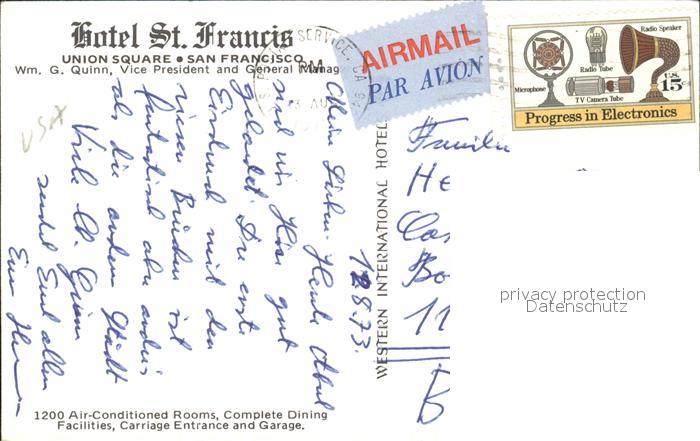 Hotel St. Francis
UNION SQUARE • SAN FRANCISCO
Wm. G. Quinn, Vice President and General Manag
AIRMAIL
PAR AVION
Radio Speaker
Radio Tube
Microphone
U.S. 15c
TV Camera Tube
Progress in Electronics
SERVICE, CA
PM
AU
USA
12.8.73.
Meine Lieben. Heute Abend
sind wir hier gut
gelandet. Der erste
Eindruck mit den
vielen Brücken ist
fantastisch aber anders
als die andern Städte
Viele lb. Grüsse
sendet Euch allen
Eure
WESTERN INTERNATIONAL HOTEL
Familie
He
Bo
11
B
privacy protection
Datenschutz
1200 Air-Conditioned Rooms, Complete Dining
Facilities, Carriage Entrance and Garage.